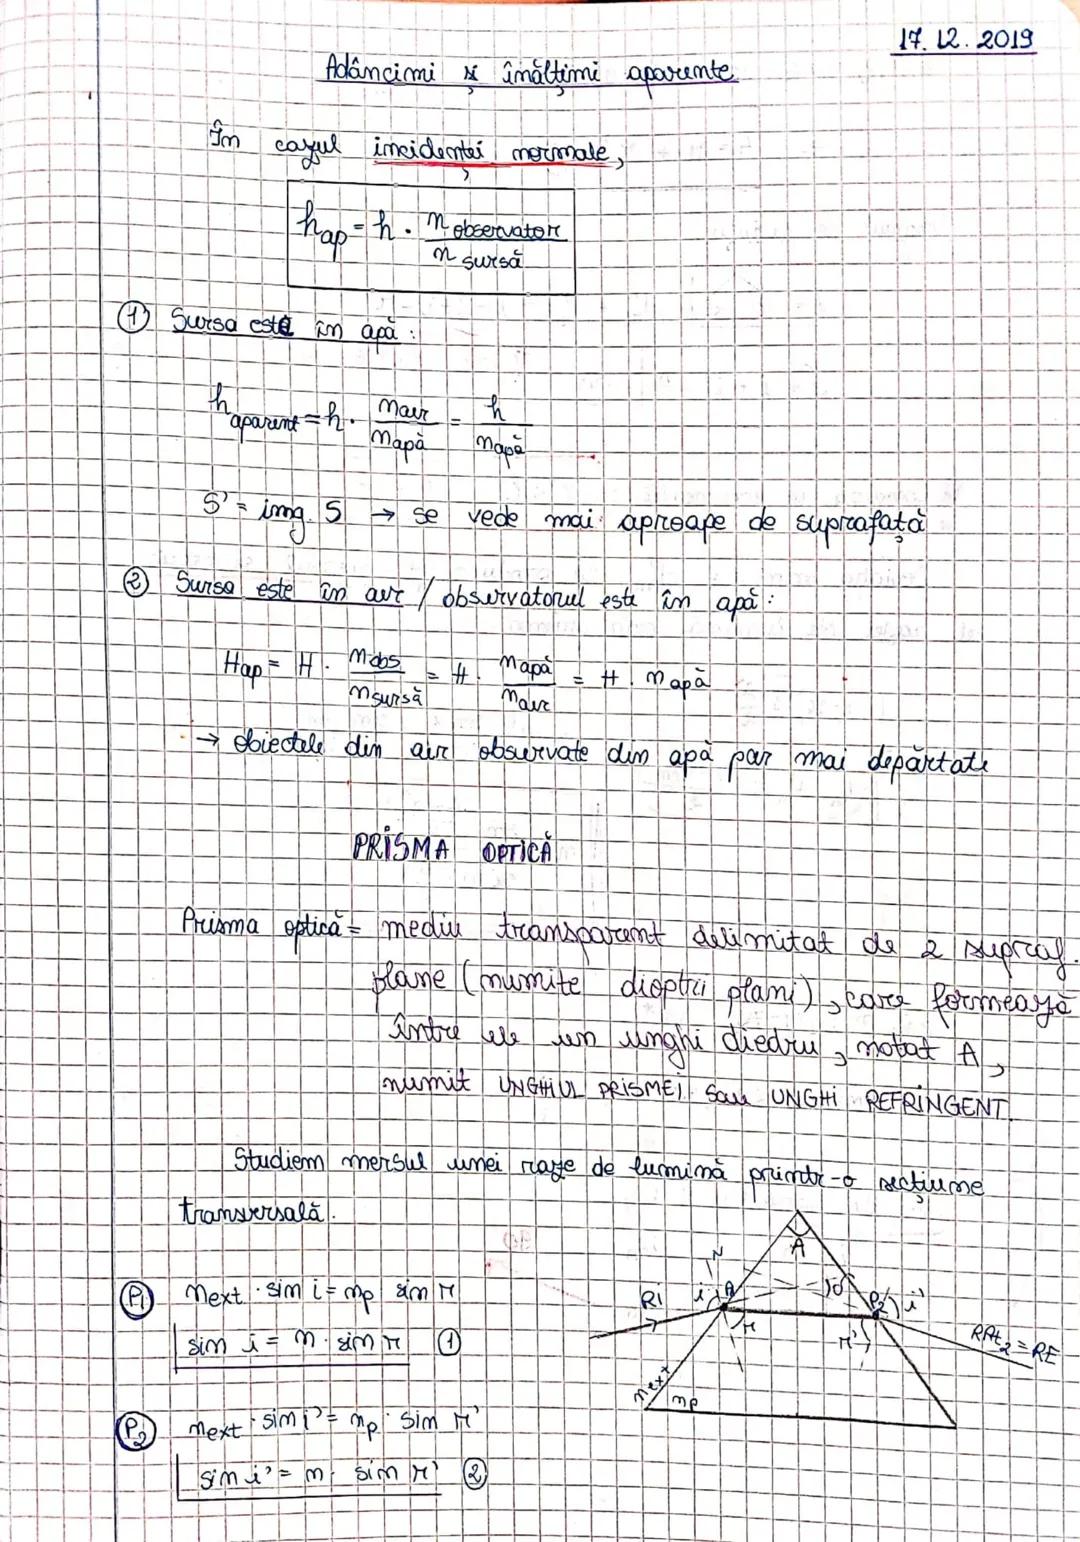 17.12.2019
Adâncimi și înălțimi aparente
În cazul incidenței normale,
h ap = h · n observator / n sursă
① Sursa este în apă:
h aparent = h · n aer / n apă = h / n apă
S' = img. S → se vede mai aproape de suprafață
② Sursa este în aer / observatorul este în apă:
Hap = H · n obs / n sursă = H · n apă / n aer = H · n apă
→ obiectele din aer observate din apă par mai depărtate
PRISMA OPTICĂ
Prisma optică = mediu transparent delimitat de 2 supraf.
plane (numite dioptri plani), care formează
între ele un unghi diedru, notat A,
numit UNGHIUL PRISMEI sau UNGHI REFRINGENT.
Studiem mersul unei raze de lumină printr-o secțiune
transversală.
P1 next · sin i = np sin r
sin i = n · sin r ①
P2 next · sin i' = np · sin r'
sin i' = n · sin r' ②
A
N
RI
i
r
δ
P2
i'
r'
RRt2 = RE
next
np